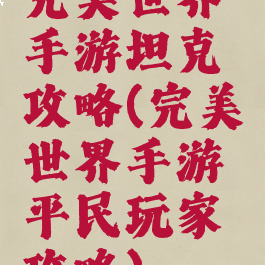 完美世界
手游坦克
攻略(完美
世界手游
平民玩家
攻略)